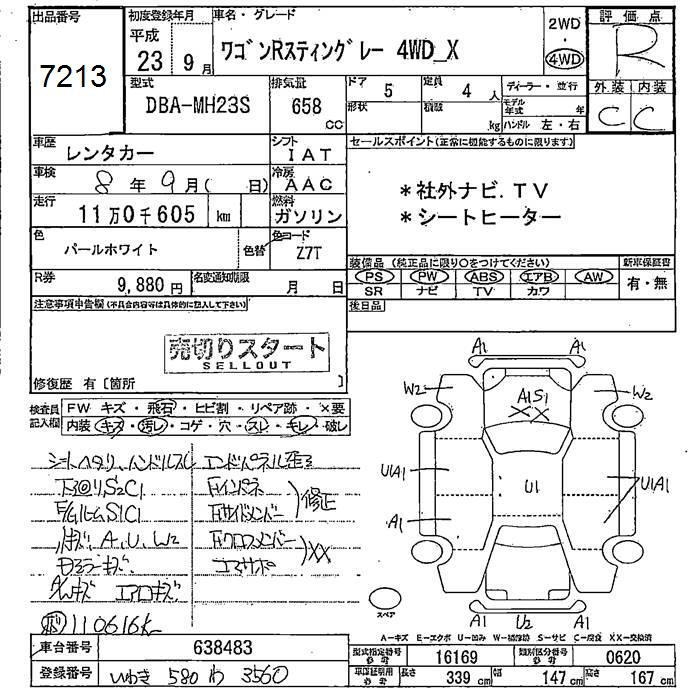 出品番号
7213
初度登録年月
平成
23 9月
車名・グレード
ワゴンRスティングレー 4WD_X
2WD
・
4WD
評価点
R
外装 内装
C C
型式
DBA-MH23S
排気量
658
cc
ドア
5
定員
4 人
形状
積載
kg
ディーラー・並行
モデル年式 年
ハンドル 左・右
車歴
レンタカー
シフト
IAT
車検
8年9月( 日)
冷房
AAC
走行
11万0千605 km
燃料
ガソリン
色
パールホワイト
色替
色コード
Z7T
R券
9,880円
名変通知期限
月 日
セールスポイント(正常に機能するものに限ります)
*社外ナビ.TV
*シートヒーター
装備品(純正品に限り○をつけてください)
PS PW ABS エアB AW
SR ナビ TV カワ
新車保証書
有・無
後日品
注意事項申告欄(不具合内容等は具体的に記入して下さい)
売切りスタート
SELLOUT
修復歴 有〔箇所 〕
検査員記入欄
FW キズ・飛石・ヒビ割・リペア跡・×要
内装 キズ・汚レ・コゲ・穴・スレ・キレ・破レ
シートヘタリ、ハンドルスレ
エンドパネル歪ミ
S2C1
Fインパネ
S1C1
Fサイドメンバー
修正
A、U、W2
Fクロスメンバー
XX
コアサポ
ドアミラーキズ
エアロキズ
110616K
A1 A1
W2 W2
A1S1
XX
U1A1 U1 U1A1
A1 A1
A1 U2 A1
スペア
A-キズ E-エクボ U-凹み W-補修跡 S-サビ C-腐食 XX-交換済
車台番号
638483
型式指定番号
参考
16169
類別区分番号
参考
0620
登録番号
いわき 580 わ 3560
車庫証明用
参考
長さ
339 cm
幅
147 cm
高さ
167 cm